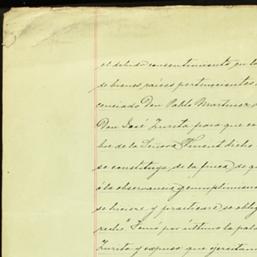 el debido consentimiento en la
de bienes raices pertenecientes
cenciado Don Pablo Martinez
Don José Zurita para que en
bre de la Señora Climent dicho
se constituya de la finca, se
á la observancia y cumplimien
se hiciere y practicare se oblig
recho" Tomó por último la pala
Zurita y expuso que ejercitan